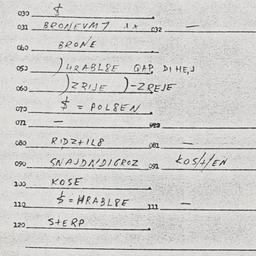 030 $
031 BRONEVM7 ** 032 —
040 BRONE
050 )4RABL8E
060 )ZRIJE )-ZREJE
070 $ = POLSEN
071 —
080 RIDZ+IL8 081 —
090 SNAJDA/DIGROZ 091
100 KOSE
110 $ = HRABL8E 111 —
120 S+ERP